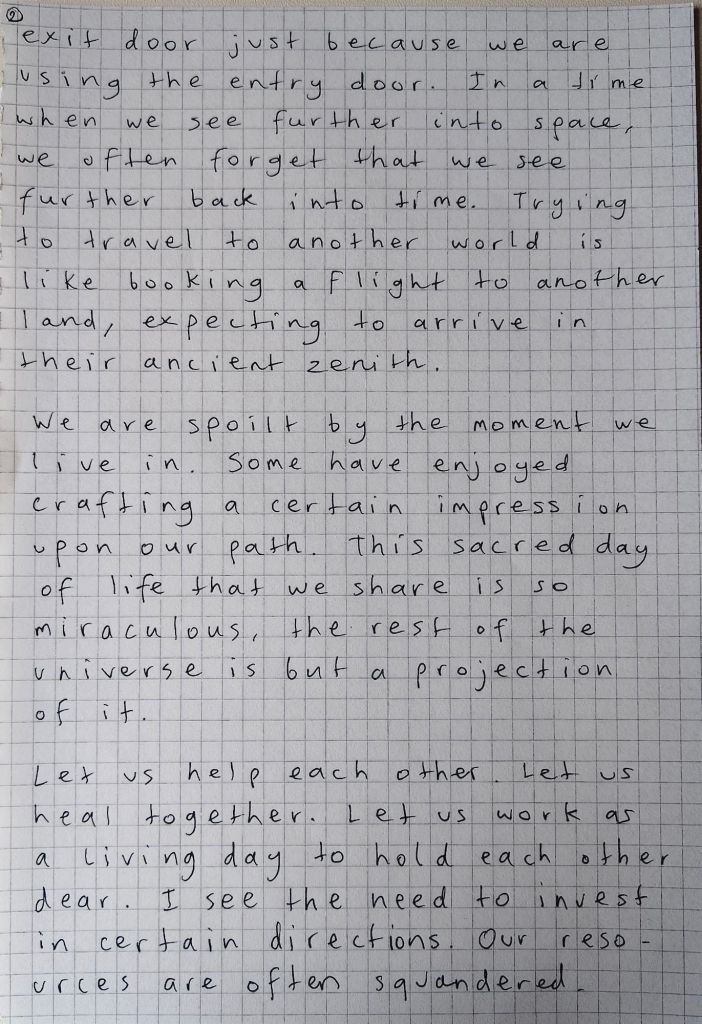 ②
exit door just because we are
using the entry door. In a time
when we see further into space,
we often forget that we see
further back into time. Trying
to travel to another world is
like booking a flight to another
land, expecting to arrive in
their ancient zenith.
We are spoilt by the moment we
live in. Some have enjoyed
crafting a certain impression
upon our path. This sacred day
of life that we share is so
miraculous, the rest of the
universe is but a projection
of it.
Let us help each other. Let us
heal together. Let us work as
a living day to hold each other
dear. I see the need to invest
in certain directions. Our reso-
urces are often squandered.